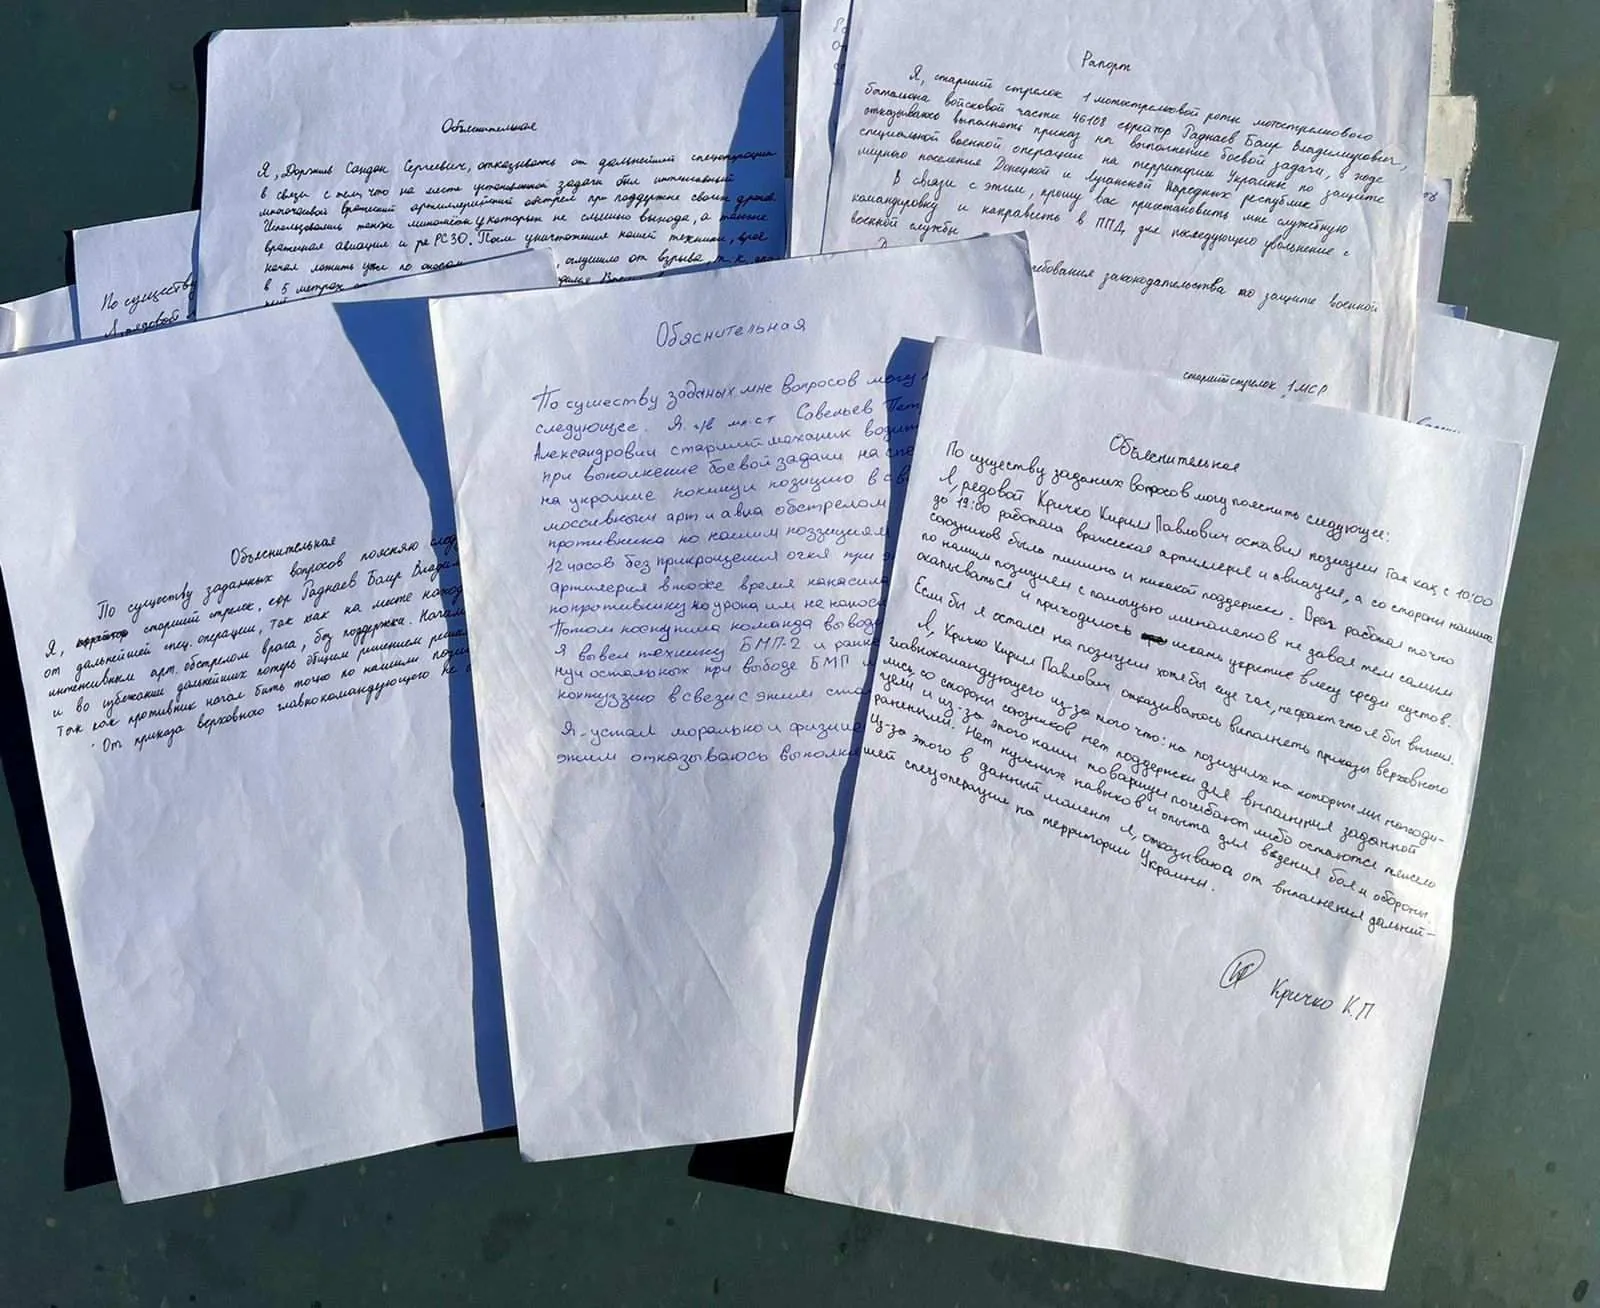 Объяснительная
Я, Доржиев Сандан Сергеевич, отказываюсь от дальнейшей спецоперации
в связи с тем, что на месте установленной задачи был интенсивный
многочасовой вражеский артиллерийский обстрел при поддержке своих дронов.
Использовались также миномёты у которых не слышно выхода, а также
вражеская авиация и РСЗО. После уничтожения нашей техники, враг
начал ложить уже по окопам
оглушило от взрыва, т.к.
в 5 метрах
По существу
Я, рядовой
Рапорт
Я, старший стрелок 1 мотострелковой роты мотострелкового
батальона войсковой части 46108 ефрейтор Раднаев Баир Владимирович,
отказываюсь выполнять приказ на выполнение боевой задачи, в ходе
специальной военной операции на территории Украины по защите
мирного населения Донецкой и Луганской Народных республик
В связи с этим, прошу вас приостановить мне служебную
командировку и направить в ППД, для последующего увольнения с
военной службы
требования законодательства по защите военной
старший стрелок 1 МСР
Объяснительная
По существу заданных вопросов поясняю
Я, старший стрелок, ефр Раднаев Баир
от дальнейшей спец. операции, так как на месте
интенсивным арт. обстрелом врага, без поддержки.
и во избежании дальнейших потерь общим решением
так как противник начал бить точно по нашим
От приказа верховного главнокомандующего не
Обяснительная
По существу заданых мне вопросов могу
следующее. Я г/в мл.с-т Савельев
Александрович старший механик
при выполнение боевой задачи на
на украине покинул позицию в
моссивным арт и авиа обстрелом
противника по нашим поззициям
12 часов без прикрощения огня при
артилерия втоже время
попротивнику но урона им не
Потом поступила команда
Я вывел технику БМП-2 и
нул остальных при выводе БМП
контуззию в свези с этим
Я устал морально и
этим отказываюсь
Объяснительная
По существу заданых вопросов могу пояснить следующее:
Я, рядовой Кричко Кирилл Павлович оставил позицыи так как с 10:00
до 19:00 работала вражеская артиллерия и авиация, а со стороны наших
союзников была тишина и никакой поддержки. Враг работал точно
по нашим позициям с помощью миномётов не давая тем самым
окапываться и приходилось искать укрытие в лесу среди кустов.
Если бы я остался на позиции хотя бы ещё час, не факт что я бы выжил.
Я, Кричко Кирил Павлович отказываюсь выполнять приказы верховного
главнокомандующего из-за того что: на позициях на которых мы находи-
лись со стороны союзников нет поддержки для выполнения заданной
цели и из-за этого наши товарищи погибают либо остаются тяжело
ранеными. Нет нужных навыков и опыта для ведения боя и обороны.
Из-за этого в данный момент я, отказываюсь от выполнения дальней-
шей спецоперации на территории Украины.
Кричко К.П